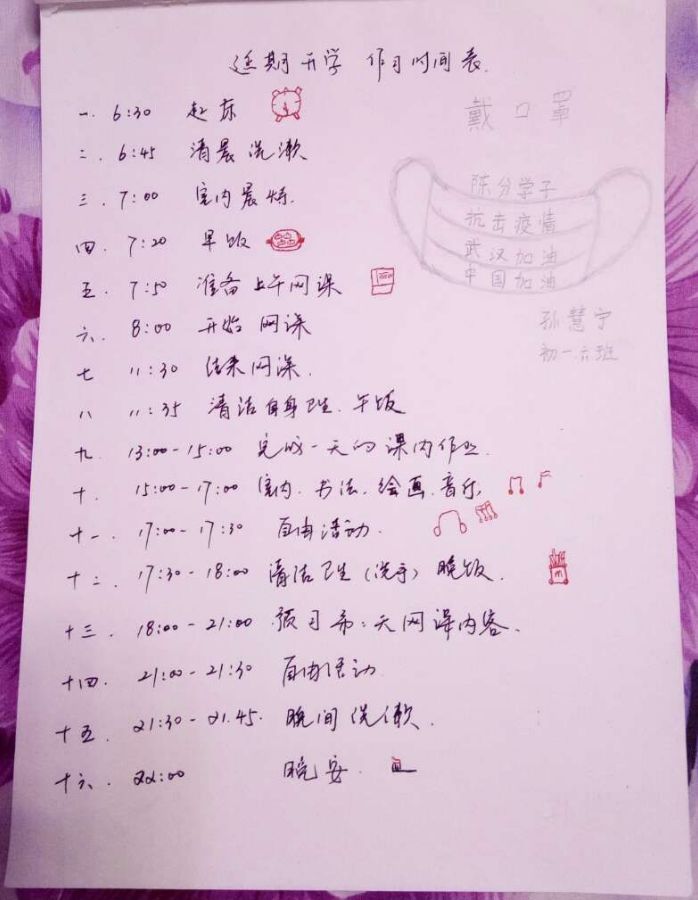 延期开学 作习时间表.
一. 6:30 起床
二. 6:45 清晨洗漱
三. 7:00 室内晨练.
四. 7:20 早饭
五. 7:50 准备上午网课
六. 8:00 开始网课
七 11:30 结束网课.
八 11:35 清洁自身卫生.午饭
九. 13:00-15:00 完成一天的课内作业.
十. 15:00-17:00 室内.书法.绘画.音乐
十一. 17:00-17:30 自由活动.
十二. 17:30-18:00 清洁卫生(洗手) 晚饭.
十三. 18:00-21:00 预习第二天网课内容.
十四. 21:00-21:30 自由活动
十五. 21:30-21.45. 晚间洗漱.
十六. 22:00 晚安.
戴口罩
陈分学子
抗击疫情
武汉加油
中国加油
孙慧宁
初一.六班